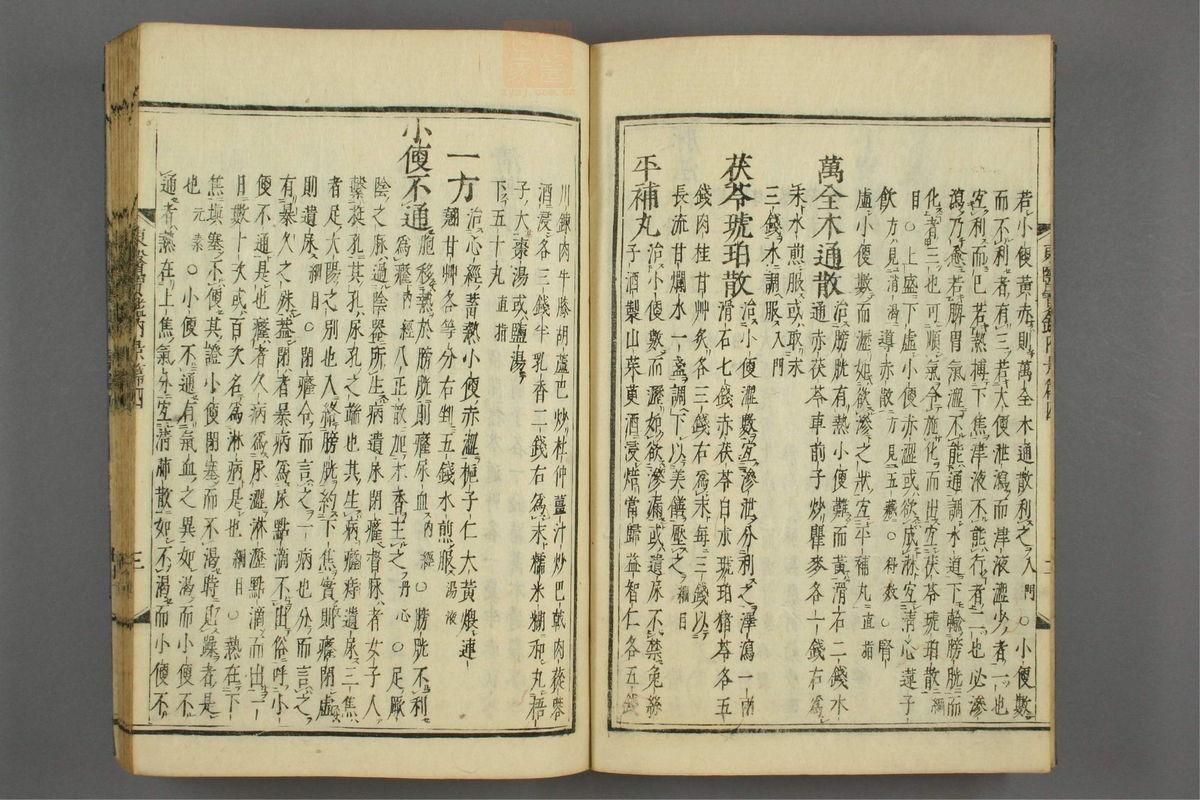 若小便黃赤則萬全木通散利之入門○小便數
而不利者有三若大便泄瀉而津液澁少者一也
宜利而已若熱搏下焦津液不能行者二也必滲
瀉乃愈若脾胃氣澁不能通調水道下輸膀胱而
化者三也可順氣令施化而出宜茯苓琥珀散綱
目○上盛下虛小便赤澁或欲成淋宜淸心蓮子
飮方見消渴導赤散方見五藏○科數○腎
虛小便數而瀝如欲滲之狀宜平補丸直指
萬全木通散治膀胱有熱小便難而黃滑石二錢木
通赤茯苓車前子炒瞿麥各一錢右爲
末水煎服或取末
三錢水調服入門
茯苓琥珀散治小便澁數宜滲泄分利之澤瀉一兩
滑石七錢赤茯苓白朮琥珀猪苓各五
錢肉桂甘艸炙各三錢右爲末每三錢以
長流甘爛水一盞調下以美饍壓之綱目
平補丸治小便數而瀝如欲滲漏或遺尿不禁兔絲
子酒製山茱萸酒浸焙當歸益智仁各五錢
川鍊肉牛膝胡蘆巴炒杜仲薑汁炒巴戟肉蓯蓉
酒浸各三錢半乳香二錢右爲末糯米糊和丸梧
子大棗湯或鹽湯
下五十丸直指
一方治心經蓄熱小便赤澁梔子仁大黃煨連
翹甘艸各等分右剉五錢水煎服湯液
小便不通胞移熱於膀胱則癃尿血內經○膀胱不利
爲癃內經八正散加木香主之丹心○足厥
陰之脉過陰器所生病遺尿閉癃督脉者女子入
繫廷孔其孔尿孔之端也其生病癃痔遺尿三焦
者足太陽之別也入絡膀胱約下焦實則癃閉虛
則遺尿綱目○閉癃合而言之一病也分而言之
有暴久之殊盖閉者暴病爲尿點滴不出俗呼小
便不通是也癃者久病爲尿澁淋瀝點滴而出一
日數十次或百次名爲淋病是也綱目○熱在下
焦塡塞不便其證小便閉塞而不渴時見躁者是
也元素○小便不通有氣血之異如渴而小便不
通者熱在上焦氣分宜淸肺散如不渴而小便不
東醫寶鑑內景篇四
三